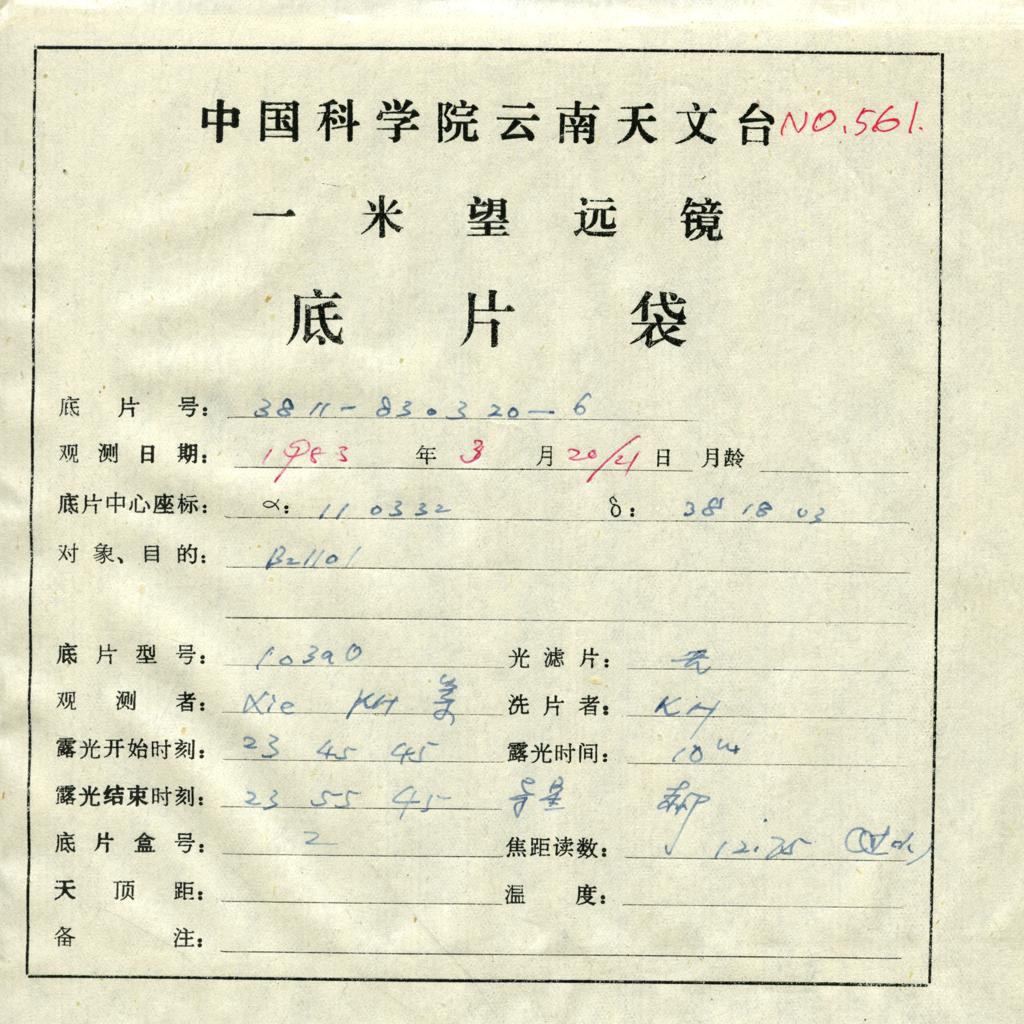 中国科学院云南天文台 NO.561.
一米望远镜
底片袋
底片号: 3811-83.320-6
观测日期: 1983年3月20/21日 月龄
底片中心座标: α: 11 03 32 δ: 38 18 03
对象、目的: B21101
底片型号: 103aO 光滤片: 无
观测者: Xie KH 洗片者: KH
露光开始时刻: 23 45 45 露光时间: 10m
露光结束时刻: 23 55 45 导星
底片盒号: 2 焦距读数: 12.75
天顶距: 温度:
备注: